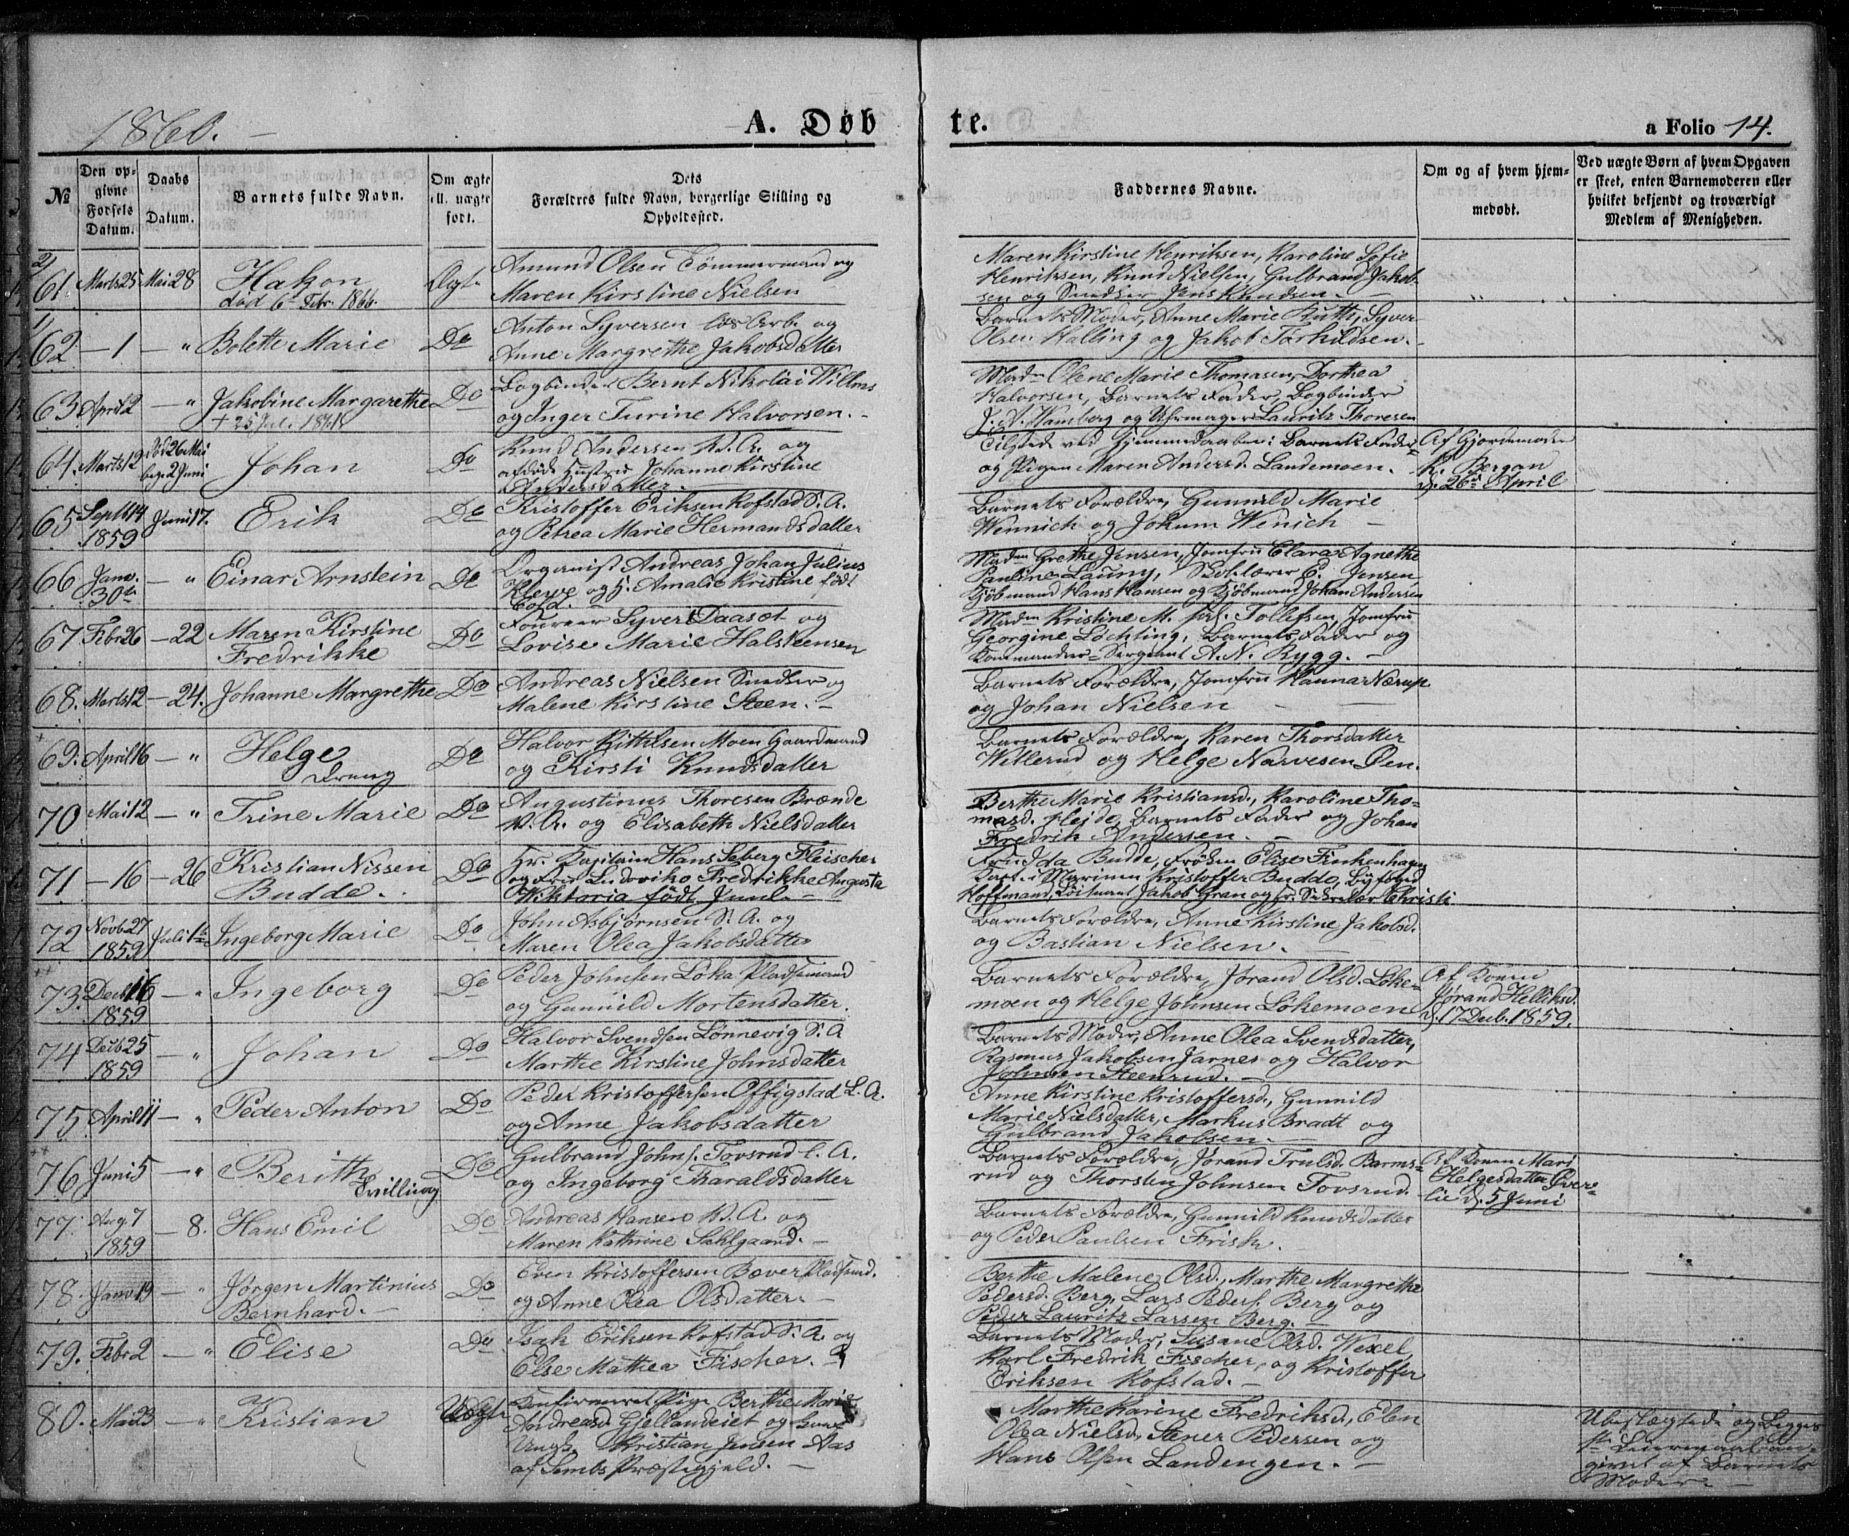 1860.
A. Døbte.
a Folio 14.
№
Den opgivne Fødsels Datum.
Daabs Datum.
Barnets fulde Navn.
Om ægte ell. uægte født.
Dets Forældres fulde Navn, borgerlige Stilling og Opholdssted.
Faddernes Navne.
Om og af hvem hjemmedøbt.
Ved uægte Børn af hvem Opgaven er skeet, enten Barnemoderen eller hvilket bekjendt og troværdigt Medlem af Menigheden.
61. Marts 25 Mai 28 Hakon Ægt.
død 6te Febr. 1866.
Amund Olsen Tømmermand og
Maren Kirstine Nielsen
Maren Kirstine Henriksen, Karoline Sofie
Henriksen, Knud Nielsen, Gulbrand Jakob-
sen og Snedker Jens Knudsen.
62 — 1 — " Bolette Marie Do
Anton Syversen løs Arb. og
Anne Margrethe Jakobsdatter
Barnets Moder, Anne Marie Rutti, Syver
Olsen Halling og Jakob Torkildsen.
63 April 2 — " Jakobine Margarethe Do
Bogbinder Bernt Nikolai Willms
og Inger Turine Halvorsen.
Madm Olene Marie Thomasen, Dorthea
Halvorsen, Barnets Fader, Bogbinder
J. A. Hamberg og Uhrmager Lauritz Thoresen
64. Marts 12 Død 26 Mai
begr. 2 Juni Johan Do
Knud Andersen V. A. og
afdøde Hustru Johanne Kirstine
Andersdatter.
Tilstede ved Hjemmedaaben: Barnets Fader
og Pigen Maren Andersd. Landemoen.
Af Gjordemoder
K. Bergan
d. 26de April
65 Septb 14
1859 Juni 17. Erik Do
Kristoffer Eriksen Kofstad S. A.
og Petrea Marie Hermandsdatter
Barnets Forældre, Gunnild Marie
Wennich og Jokum Wenich
66 Janv.
30te — " Einar Arnstein Do
Organist Andreas Johan Julius
Klewe og H. Amalie Kristine født
Cold.
Madm Grethe Jensen, Jomfru Clara Agnethe
Pauline Launy, Skolelærer E. Jensen,
Kjøbmand Hans Hansen og Kjøbmand Johan Andersen
67 Febr 26 — 22 Maren Kirstine
Fredrikke Do
Foureer Syver Daasæt og
Lovise Marie Halsteensen
Madm Kristine M. Tollefsen, Jomfru
Georgine Løchting, Barnets Fader og
Kommander-Sergeant A. N. Rygg.
68. Marts 12 — 24. Johanne Margrethe Do
Andreas Nielsen Snedker og
Malene Kirstine Steen.
Barnets Forældre, Jomfru Hanna Nærup
og Johan Nielsen
69. April 16 — " Helge
Dreng Do
Halvor Kittilsen Moen Gaardmand
og Kirsti Knudsdatter
Barnets Forældre, Karen Thorsdatter
Willerud og Helge Narvesen Øen.
70 Mai 12 — " Trine Marie Do
Augustinus Thoresen Brænde
V. A. og Elisabeth Nielsdatter
Berthe Marie Kristiansd., Karoline Tho-
masd. Hejde, Barnets Fader og Johan
Fredrik Andersen.
71 — 16 — 26 Kristian Nissen
Budde. Do
Hr. Kapitain Hans Seberg Fleischer
og Fru Ludovika Fredrikke Augusta
Wiktoria født Juul
Fru Ida Budde, Frøken Elise Finkenhagen
Capt. i Marinen Kristoffer Budde, Byfoged
Hoffmand, Løitnant Jakob Gran og Hr. Sekretær Christi
72 Novb 27
1859 Juli 1te Ingeborg Marie Do
John Asbjørnsen S. A. og
Maren Olea Jakobsdatter
Barnets Forældre, Anne Kirstine Jakobsd.
og Bastian Nielsen.
73. Decb 16
1859 — " Ingeborg Do
Peder Johnsen Løka Pladsmand
og Gunnild Mortensdatter.
Barnets Forældre, Jørand Olsd. Løke-
moen og Helge Johnsen Løkemoen
Af Konen
Jørand Helliksd.
d. 17 Decb. 1859.
74 Decb 25
1859 — " Johan Do
Halvor Svendsen Lønnevig S. A
Marthe Kirstine Johnsdatter
Barnets Moder, Anne Olea Svendsdatter,
Rasmus Jakobsen Jarnes og Halvor
Johnsen Steenrud.
75. April 11 — " Peder Anton Do
Peder Kristoffersen Offigstad L. A.
og Anne Jakobsdatter
Anne Kirstine Kristoffersd., Gunnild
Marie Nielsdatter, Markus Bradt og
Gulbrand Jakobsen.
76 Juni 5 — " Berith
Tvilling Do
Gulbrand Johns. Tovsrud L. A.
og Ingeborg Tharaldsdatter
Barnets Forældre, Jørand Trulsd. Barms-
rud og Thorsten Johnsen Tovsrud.
Af Konen Mari
Helgesdatter Øver-
lie d. 5 Juni
77. Aug. 7
1859 — 8. Hans Emil Do
Andreas Hansen V. A. og
Maren Kathrine Sahlgaard.
Barnets Forældre, Gunnild Knudsdatter
og Peder Paulsen Frisk.
78. Janv 19 — " Jørgen Martinius
Bernhard. Do
Even Kristoffersen Bæver Pladsmd.
og Anne Olea Olsdatter.
Berthe Malene Olsd., Marthe Margrethe
Pedersd. Berg, Lars Peders. Berg og
Peder Lauritz Larsen Berg.
79. Febr 2 — " Elise Do
Isak Eriksen Kofstad S. A. og
Else Mathea Fischer.
Barnets Moder, Susane Olsd. Wexel,
Karl Fredrik Fischer, og Kristoffer
Eriksen Kofstad.
80. Mai 23 — " Kristian Uægte
Konfirmeret Pige Berthe Marie
Andreasd. Gjellandeiet og
Ungk. Kristian Jensen Aas
af Sembs Præstegjeld.
Marthe Karine Fredriksd., Elen
Olea Nielsd., Stener Pedersen og
Hans Olsen Landengen.
Ubeslægtede og Begges
1ste Leiermaal an-
givet af Barnets
Moder.